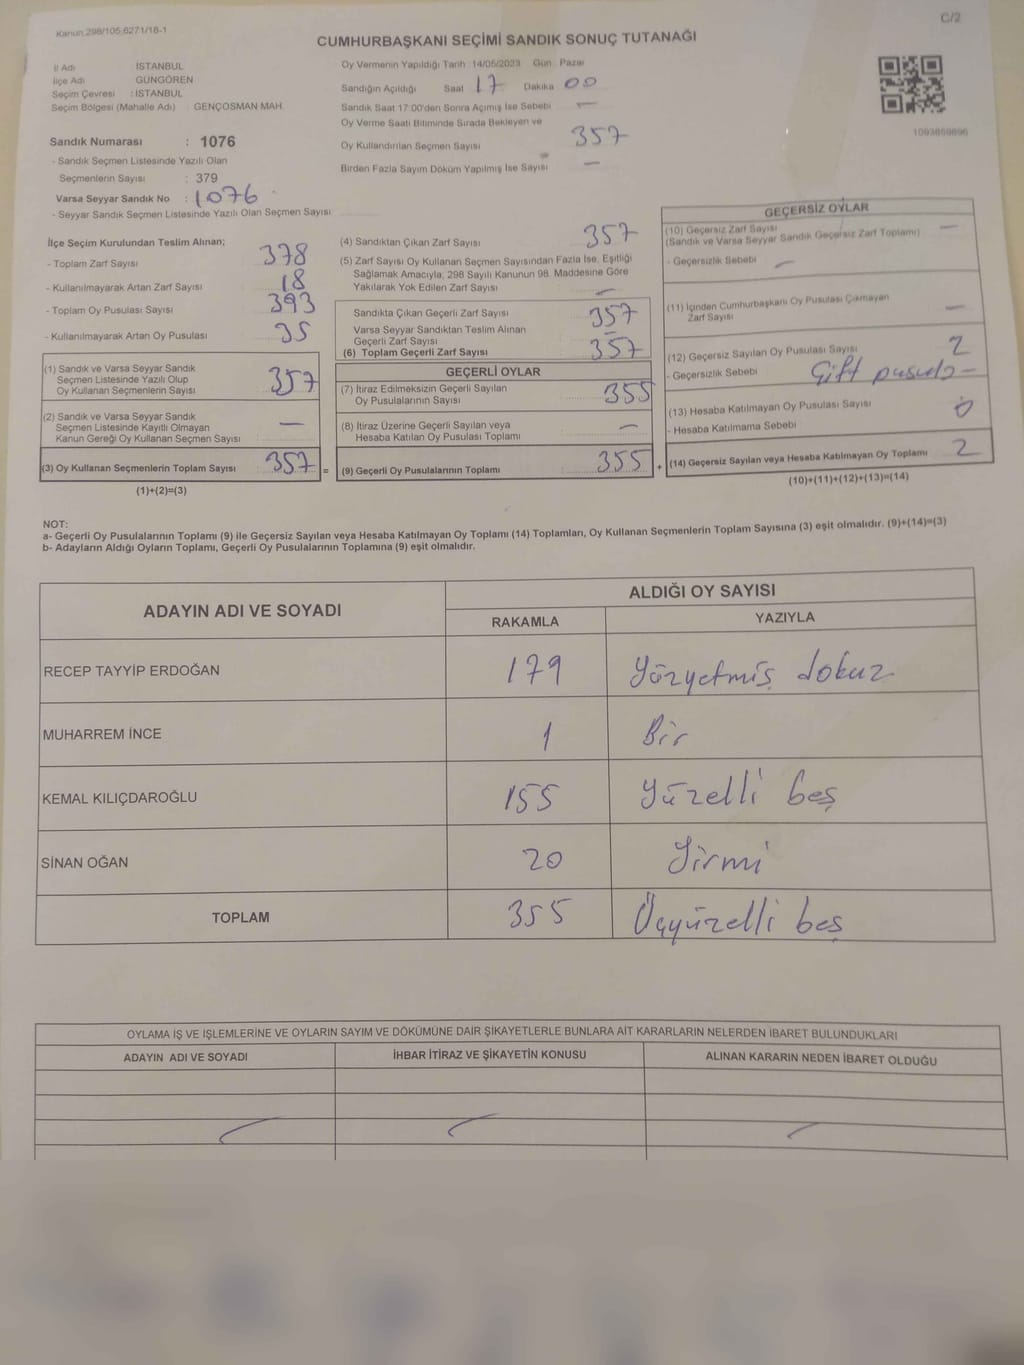 Kanun:298/105,6271/18-1
C/2
CUMHURBAŞKANI SEÇİMİ SANDIK SONUÇ TUTANAĞI
İl Adı : İSTANBUL
İlçe Adı : GÜNGÖREN
Seçim Çevresi : İSTANBUL
Seçim Bölgesi (Mahalle Adı) : GENÇOSMAN MAH.
Oy Vermenin Yapıldığı Tarih : 14/05/2023 Gün : Pazar
Sandığın Açıldığı Saat 17 Dakika 00
Sandık Saat 17:00'den Sonra Açılmış İse Sebebi —
Oy Verme Saati Bitiminde Sırada Bekleyen ve
Oy Kullandırılan Seçmen Sayısı 357
Birden Fazla Sayım Döküm Yapılmış İse Sayısı —
1093859896
Sandık Numarası : 1076
- Sandık Seçmen Listesinde Yazılı Olan
Seçmenlerin Sayısı : 379
Varsa Seyyar Sandık No : 1076
- Seyyar Sandık Seçmen Listesinde Yazılı Olan Seçmen Sayısı
İlçe Seçim Kurulundan Teslim Alınan;
- Toplam Zarf Sayısı 378
- Kullanılmayarak Artan Zarf Sayısı 18
- Toplam Oy Pusulası Sayısı 393
- Kullanılmayarak Artan Oy Pusulası 35
(1) Sandık ve Varsa Seyyar Sandık
Seçmen Listesinde Yazılı Olup
Oy Kullanan Seçmenlerin Sayısı 357
(2) Sandık ve Varsa Seyyar Sandık
Seçmen Listesinde Kayıtlı Olmayan
Kanun Gereği Oy Kullanan Seçmen Sayısı —
(3) Oy Kullanan Seçmenlerin Toplam Sayısı 357 =
(1)+(2)=(3)
(4) Sandıktan Çıkan Zarf Sayısı 357
(5) Zarf Sayısı Oy Kullanan Seçmen Sayısından Fazla İse, Eşitliği
Sağlamak Amacıyla; 298 Sayılı Kanunun 98. Maddesine Göre
Yakılarak Yok Edilen Zarf Sayısı —
Sandıkta Çıkan Geçerli Zarf Sayısı 357
Varsa Seyyar Sandıktan Teslim Alınan
Geçerli Zarf Sayısı
(6) Toplam Geçerli Zarf Sayısı 357
GEÇERLİ OYLAR
(7) İtiraz Edilmeksizin Geçerli Sayılan
Oy Pusulalarının Sayısı 355
(8) İtiraz Üzerine Geçerli Sayılan veya
Hesaba Katılan Oy Pusulası Toplamı —
(9) Geçerli Oy Pusulalarının Toplamı 355 +
GEÇERSİZ OYLAR
(10) Geçersiz Zarf Sayısı —
(Sandık ve Varsa Seyyar Sandık Geçersiz Zarf Toplamı)
- Geçersizlik Sebebi —
(11) İçinden Cumhurbaşkanı Oy Pusulası Çıkmayan
Zarf Sayısı —
(12) Geçersiz Sayılan Oy Pusulası Sayısı 2
- Geçersizlik Sebebi Çift pusula -
(13) Hesaba Katılmayan Oy Pusulası Sayısı 0
- Hesaba Katılmama Sebebi
(14) Geçersiz Sayılan veya Hesaba Katılmayan Oy Toplamı 2
(10)+(11)+(12)+(13)=(14)
NOT:
a- Geçerli Oy Pusulalarının Toplamı (9) ile Geçersiz Sayılan veya Hesaba Katılmayan Oy Toplamı (14) Toplamları, Oy Kullanan Seçmenlerin Toplam Sayısına (3) eşit olmalıdır. (9)+(14)=(3)
b- Adayların Aldığı Oyların Toplamı, Geçerli Oy Pusulalarının Toplamına (9) eşit olmalıdır.
ADAYIN ADI VE SOYADI
ALDIĞI OY SAYISI
RAKAMLA YAZIYLA
RECEP TAYYİP ERDOĞAN 179 Yüzyetmiş dokuz
MUHARREM İNCE 1 Bir
KEMAL KILIÇDAROĞLU 155 Yüzelli beş
SİNAN OĞAN 20 Yirmi
TOPLAM 355 Üçyüzelli beş
OYLAMA İŞ VE İŞLEMLERİNE VE OYLARIN SAYIM VE DÖKÜMÜNE DAİR ŞİKAYETLERLE BUNLARA AİT KARARLARIN NELERDEN İBARET BULUNDUKLARI
ADAYIN ADI VE SOYADI İHBAR İTİRAZ VE ŞİKAYETİN KONUSU ALINAN KARARIN NEDEN İBARET OLDUĞU